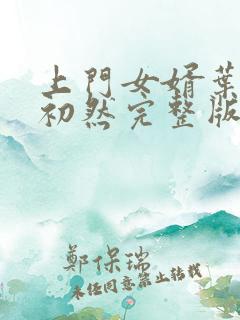 上門女婿葉
初然完整版
鄭保瑞
未经同意禁止转载